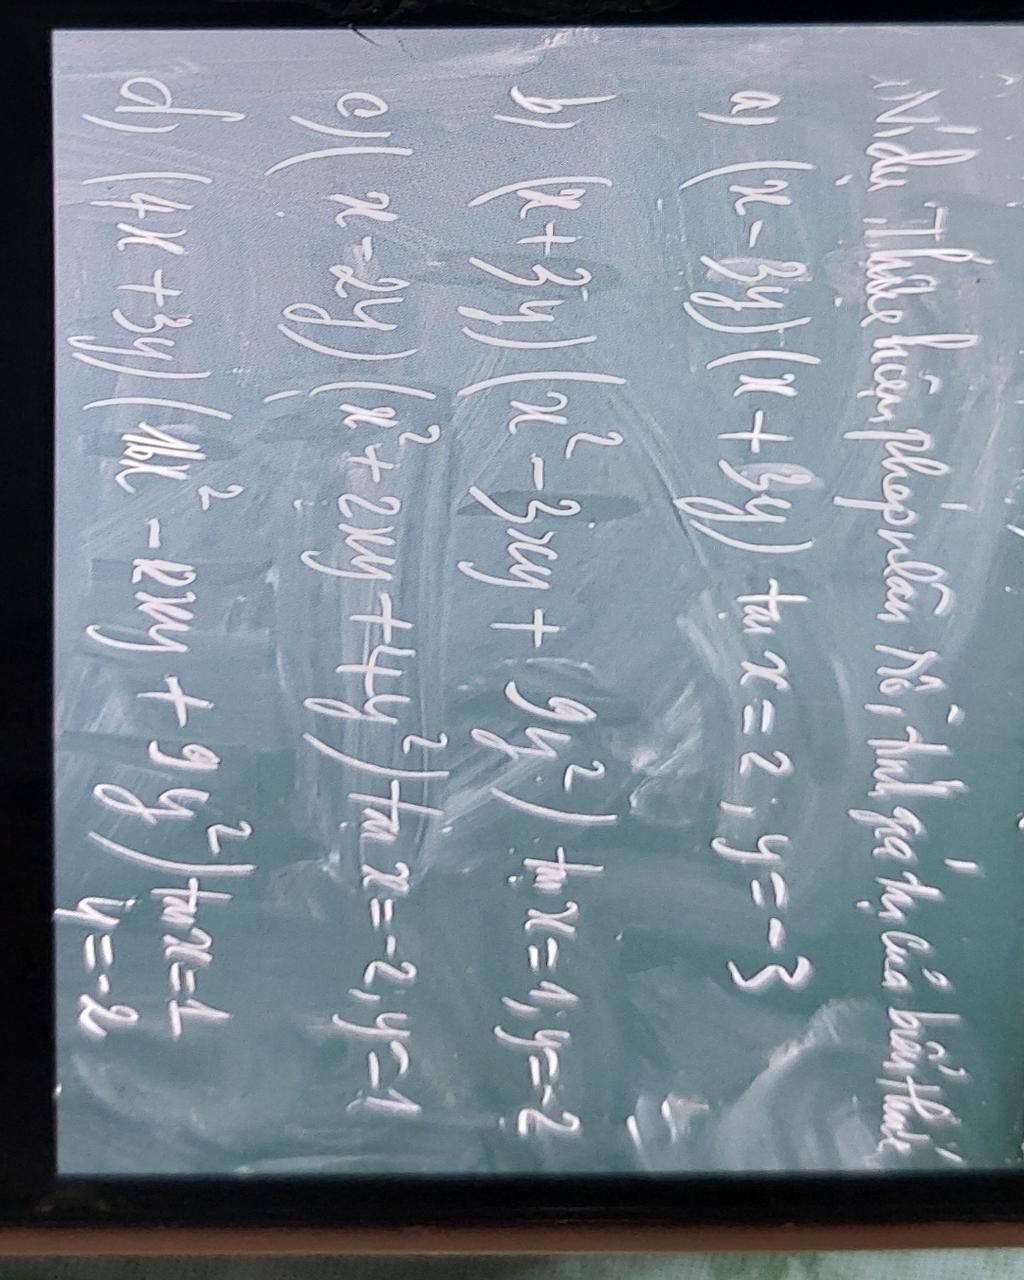 Ví dụ Thực hiện phép nhân rồi, tính giá trị của biểu thức
a) (x - 3y)(x + 3y) tại x = 2, y = -3
b) (x + 3y)(x² - 3xy + 9y²) tại x = 1, y = -2
c) (x - 2y)(x² + 2xy + 4y²) tại x = -2, y = 1
d) (4x + 3y)(16x² - 12xy + 9y²) tại x = 1
y = -2